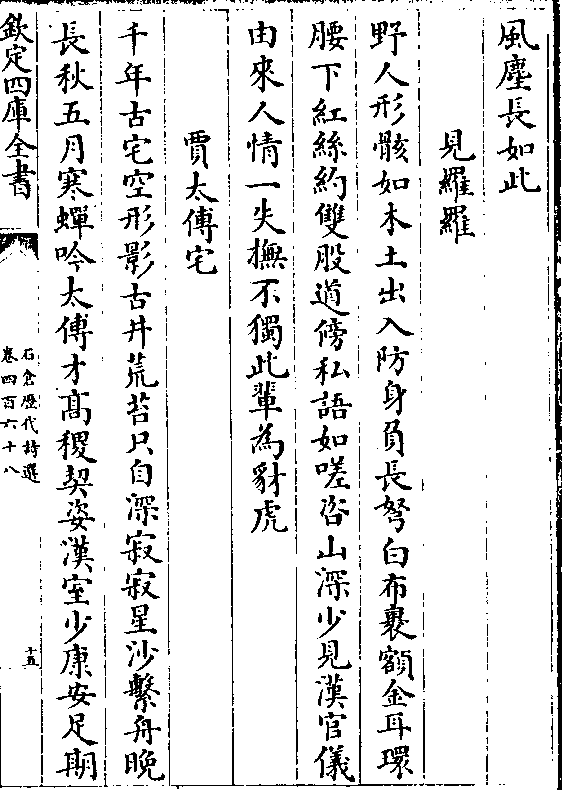 風塵長如此
見羅羅
野人形骸如木土出入防身負長弩白布裹額金耳環
腰下紅絲約雙股道傍私語如嗟咨山深少見漢官儀
由來人情一失撫不獨此輩為豺虎
賈太傅宅
千年古宅空形影古井荒苔只自深寂寂星沙繫舟晚
長秋五月寒蟬吟太傅才髙稷契姿漢室少康安足期
欽定四庫全書
石倉歷代詩選
卷四百六十八
十五